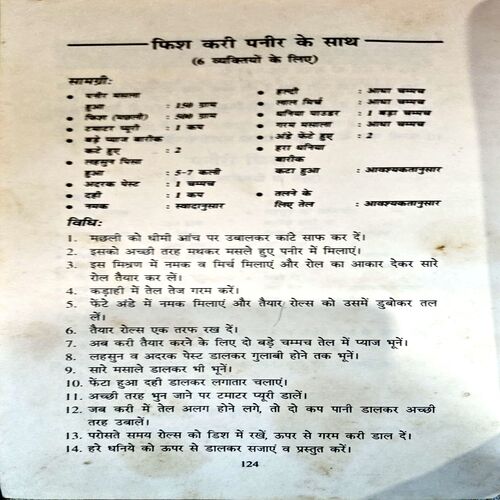 फिश करी पनीर के साथ
(6 व्यक्तियों के लिए)
सामग्री:
• पनीर मसला
हुआ : 150 ग्राम
• फिश (मछली) : 500 ग्राम
• टमाटर प्यूरी : 1 कप
• बड़े प्याज बारीक
कटे हुए : 2
• लहसुन पिसा
हुआ : 5-7 कली
• अदरक पेस्ट : 1 चम्मच
• दही : 1 कप
• नमक : स्वादानुसार
• हल्दी : आधा चम्मच
• लाल मिर्च : आधा चम्मच
• धनिया पाउडर : 1 बड़ा चम्मच
• गरम मसाला : आधा चम्मच
• अंडे फेंटे हुए : 2
• हरा धनिया
बारीक
कटा हुआ : आवश्यकतानुसार
• तलने के
लिए तेल : आवश्यकतानुसार
विधि:
1. मछली को धीमी आंच पर उबालकर कांटे साफ कर दें।
2. इसको अच्छी तरह मथकर मसले हुए पनीर में मिलाएं।
3. इस मिश्रण में नमक व मिर्च मिलाएं और रोल का आकार देकर सारे
रोल तैयार कर लें।
4. कड़ाही में तेल तेज गरम करें।
5. फेंटे अंडे में नमक मिलाएं और तैयार रोल्स को उसमें डुबोकर तल
लें।
6. तैयार रोल्स एक तरफ रख दें।
7. अब करी तैयार करने के लिए दो बड़े चम्मच तेल में प्याज भूनें।
8. लहसुन व अदरक पेस्ट डालकर गुलाबी होने तक भूनें।
9. सारे मसाले डालकर भी भूनें।
10. फेंटा हुआ दही डालकर लगातार चलाएं।
11. अच्छी तरह भुन जाने पर टमाटर प्यूरी डालें।
12. जब करी में तेल अलग होने लगे, तो दो कप पानी डालकर अच्छी
तरह उबालें।
13. परोसते समय रोल्स को डिश में रखें, ऊपर से गरम करी डाल दें।
14. हरे धनिये को ऊपर से डालकर सजाएं व प्रस्तुत करें।
124